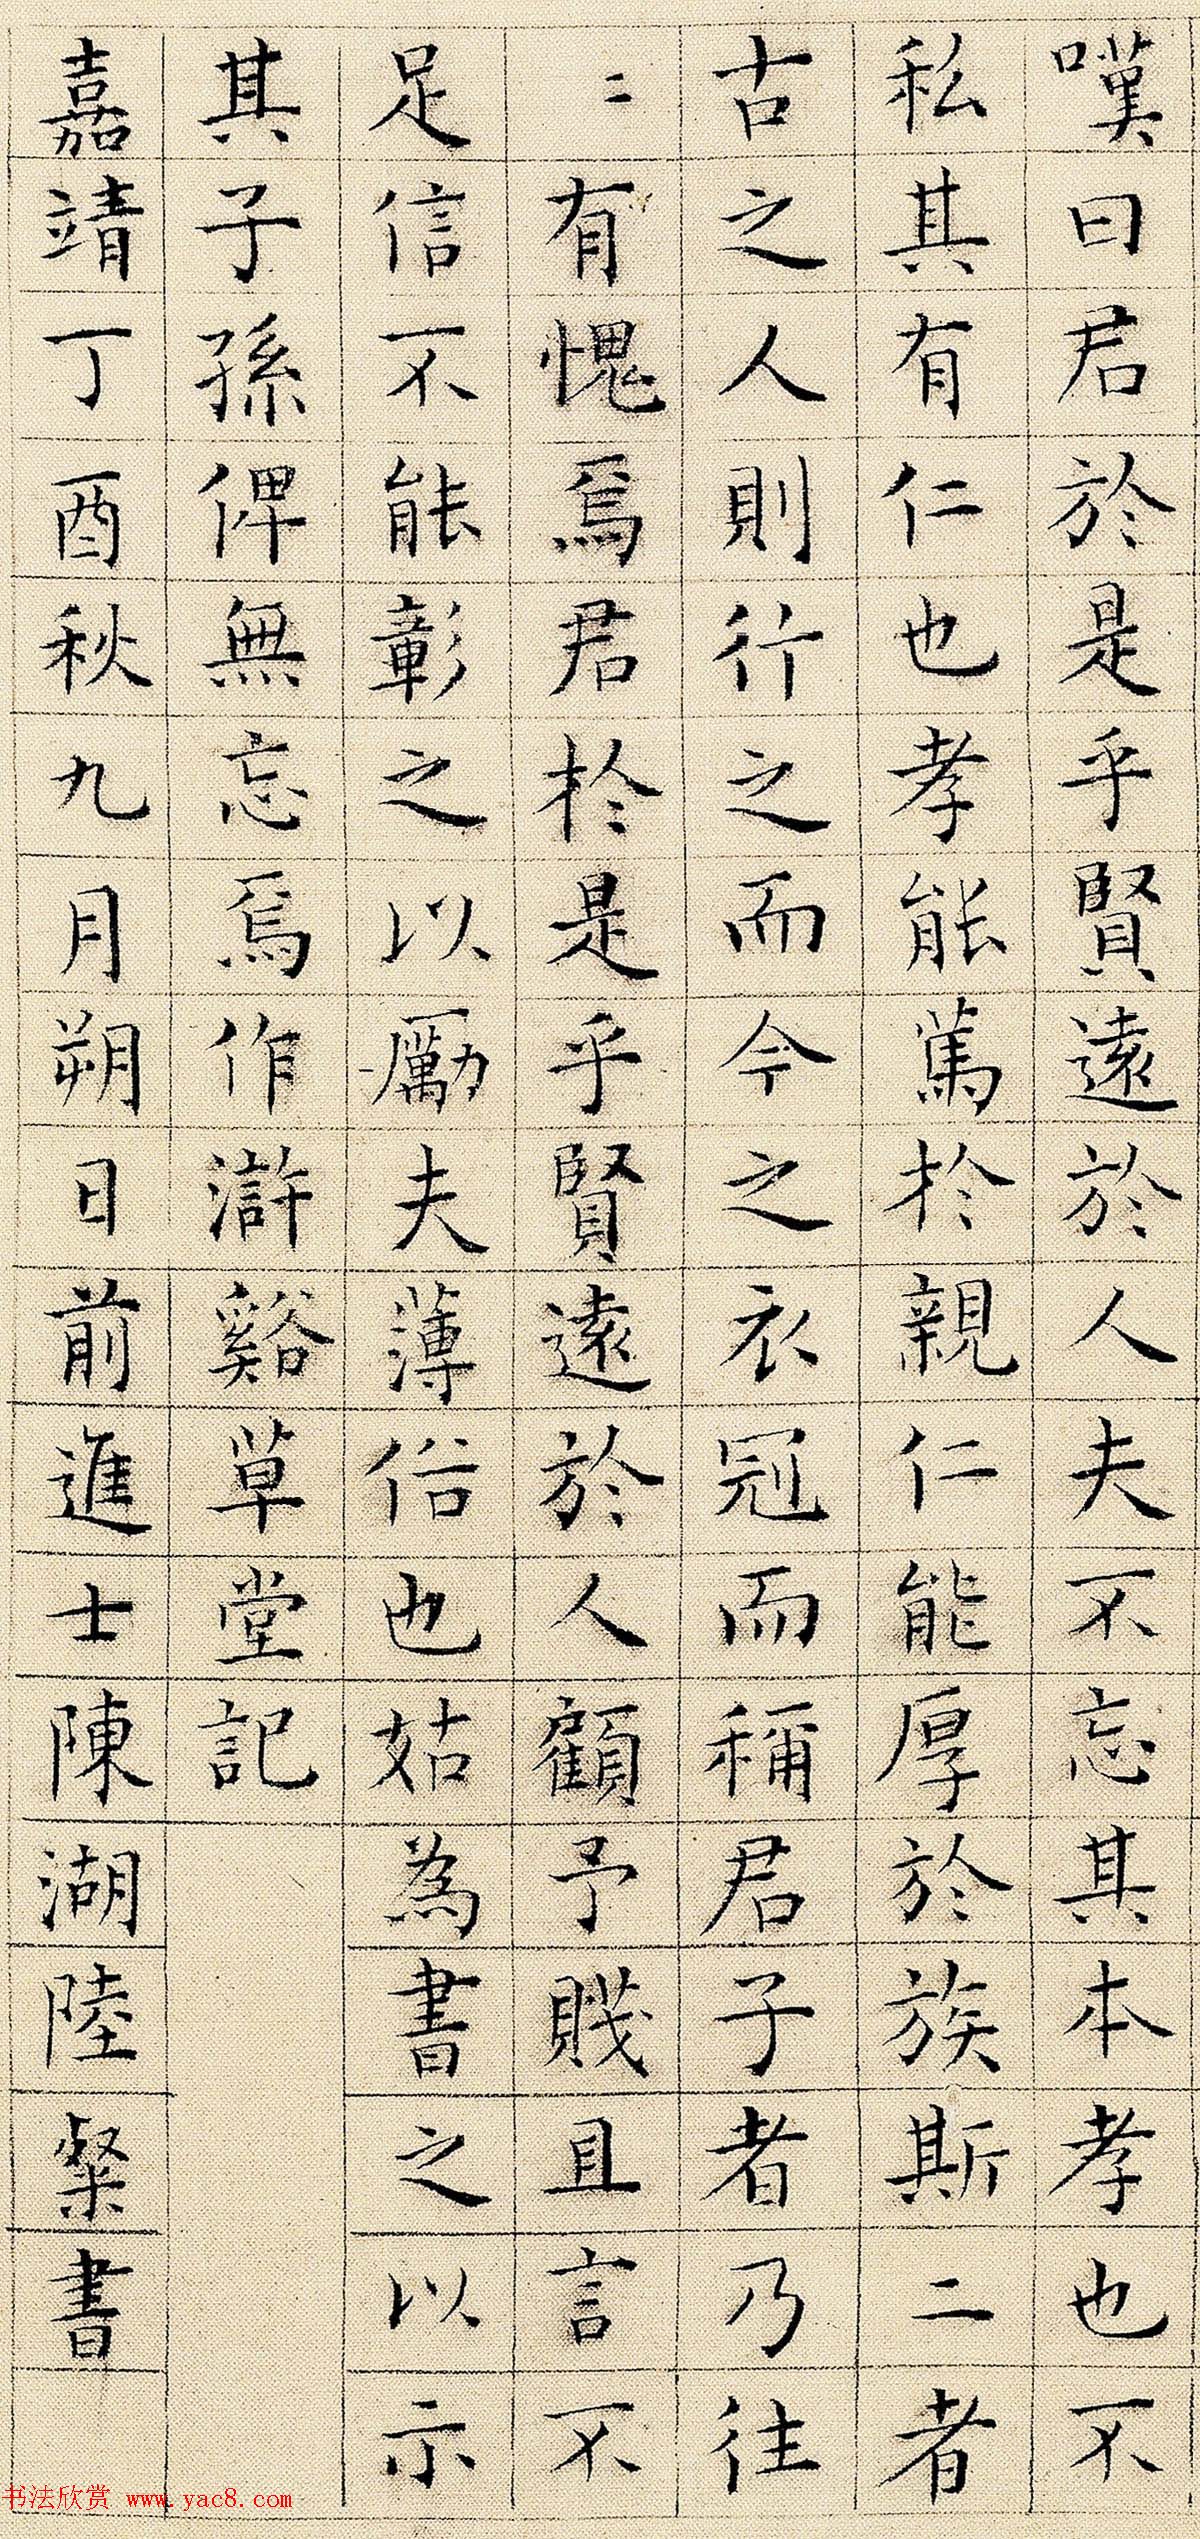 嘆曰君於是乎賢遠於人夫不忘其本孝也不
私其有仁也孝能篤於親仁能厚於族斯二者
古之人則行之而今之衣冠而稱君子者乃往
〻有愧焉君於是乎賢遠於人顧予賤且言不
足信不能彰之以勵夫薄俗也姑為書之以示
其子孫俾無忘焉作滸谿草堂記
嘉靖丁酉秋九月朔日前進士陳湖陸粲書
书法欣赏 www.yac8.com